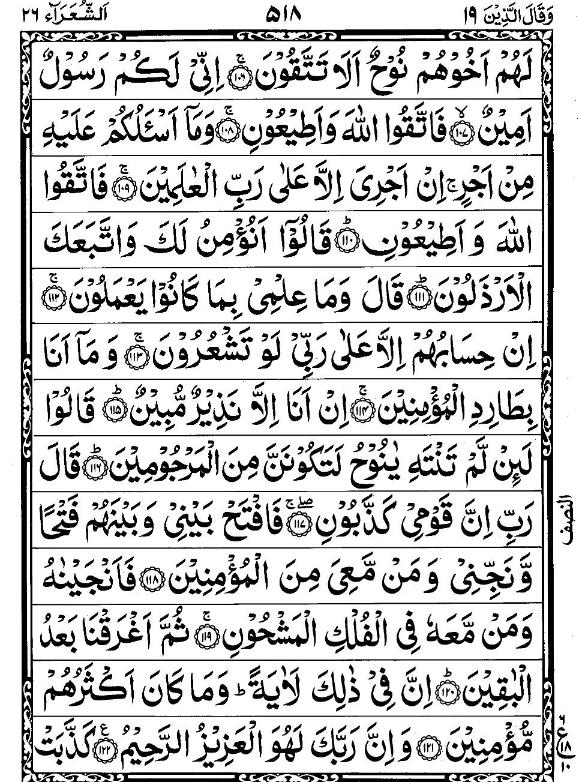 وَقَالَ الَّذِيْنَ ١٩ ٥١٨ اَلشُّعَرَآء ٢٦
لَهُمْ اَخُوْهُمْ نُوْحٌ اَلَا تَتَّقُوْنَ ﴿١٠٦﴾ اِنِّيْ لَكُمْ رَسُوْلٌ
اَمِيْنٌ ﴿١٠٧﴾ فَاتَّقُوا اللّٰهَ وَاَطِيْعُوْنِ ﴿١٠٨﴾ وَمَآ اَسْـَٔلُكُمْ عَلَيْهِ
مِنْ اَجْرٍ ۚ اِنْ اَجْرِيَ اِلَّا عَلٰى رَبِّ الْعٰلَمِيْنَ ﴿١٠٩﴾ فَاتَّقُوا
اللّٰهَ وَ اَطِيْعُوْنِ ﴿١١٠﴾ قَالُوْٓا اَنُؤْمِنُ لَكَ وَاتَّبَعَكَ
الْاَرْذَلُوْنَ ﴿١١١﴾ قَالَ وَمَا عِلْمِيْ بِمَا كَانُوْا يَعْمَلُوْنَ ﴿١١٢﴾
اِنْ حِسَابُهُمْ اِلَّا عَلٰى رَبِّيْ لَوْ تَشْعُرُوْنَ ﴿١١٣﴾ وَ مَآ اَنَا
بِطَارِدِ الْمُؤْمِنِيْنَ ﴿١١٤﴾ اِنْ اَنَا اِلَّا نَذِيْرٌ مُّبِيْنٌ ﴿١١٥﴾ قَالُوْا
لَىِٕنْ لَّمْ تَنْتَهِ يٰنُوْحُ لَتَكُوْنَنَّ مِنَ الْمَرْجُوْمِيْنَ ﴿١١٦﴾ قَالَ
رَبِّ اِنَّ قَوْمِيْ كَذَّبُوْنِ ﴿١١٧﴾ فَافْتَحْ بَيْنِيْ وَبَيْنَهُمْ فَتْحًا
وَّنَجِّنِيْ وَ مَنْ مَّعِيَ مِنَ الْمُؤْمِنِيْنَ ﴿١١٨﴾ فَاَنْجَيْنٰهُ
وَمَنْ مَّعَهٗ فِي الْفُلْكِ الْمَشْحُوْنِ ﴿١١٩﴾ ثُمَّ اَغْرَقْنَا بَعْدُ
الْبٰقِيْنَ ﴿١٢٠﴾ اِنَّ فِيْ ذٰلِكَ لَاٰيَةً ؕ وَمَا كَانَ اَكْثَرُهُمْ
مُّؤْمِنِيْنَ ﴿١٢١﴾ وَاِنَّ رَبَّكَ لَهُوَ الْعَزِيْزُ الرَّحِيْمُ ﴿١٢٢﴾ كَذَّبَتْ
النصف
٦
ع ١٨
١٠